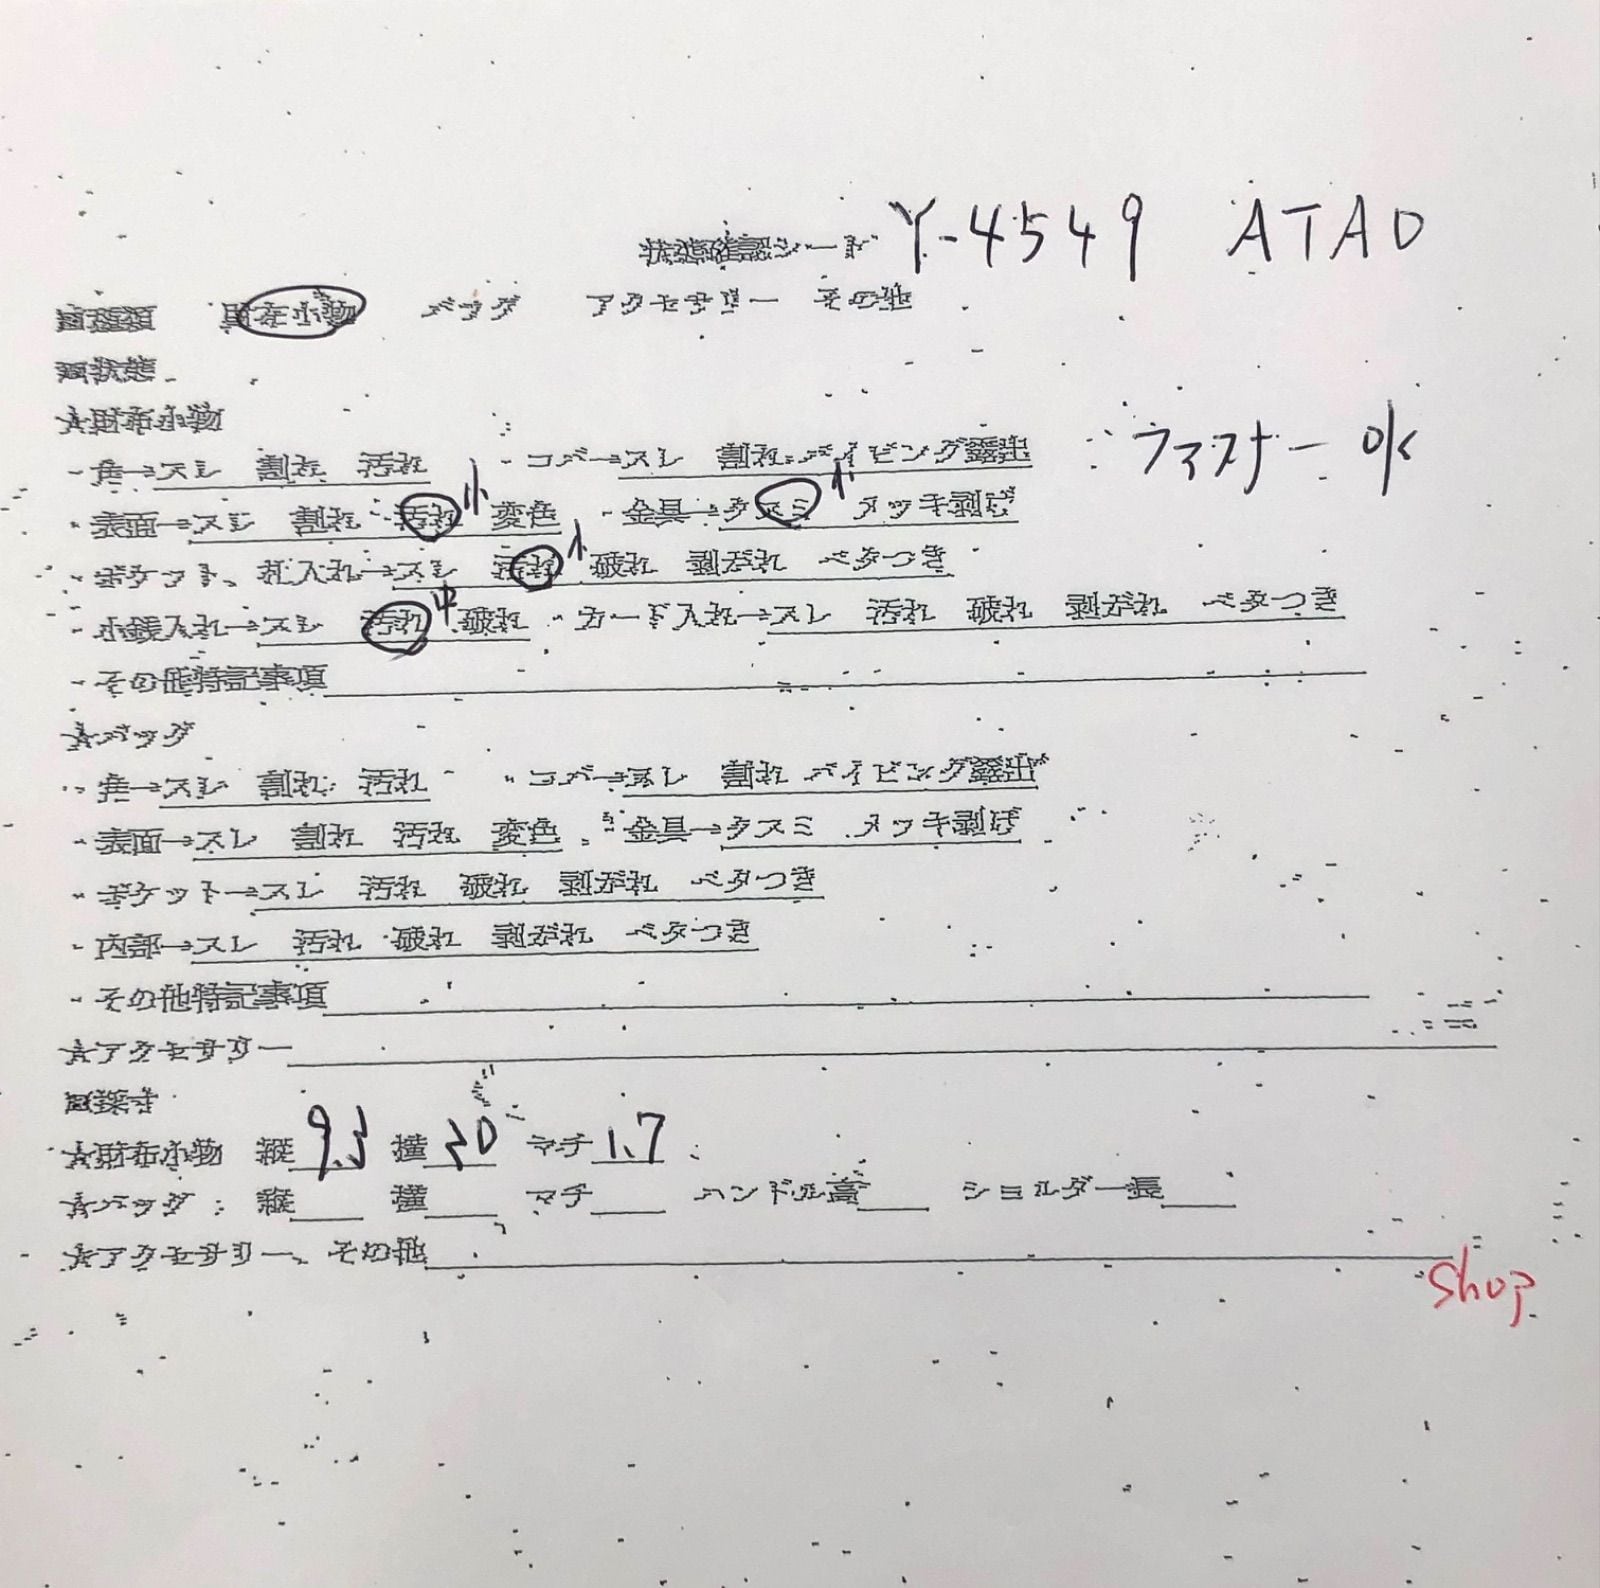 状態確認シート Y-4549 ATAO
■種類 財布小物 バッグ アクセサリー その他
■状態
★財布小物
・角→スレ 割れ 汚れ ・コバ→スレ 割れ パイピング露出 ファスナー OK
・表面→スレ 割れ 汚れ 小 変色 ・金具→クスミ 小 メッキ剥げ
・ポケット、札入れ→スレ 汚れ 小 破れ 剥がれ ベタつき
・小銭入れ→スレ 汚れ 中 破れ ・カード入れ→スレ 汚れ 破れ 剥がれ ベタつき
・その他特記事項
★バッグ
・角→スレ 割れ 汚れ ・コバ→スレ 割れ パイピング露出
・表面→スレ 割れ 汚れ 変色 ・金具→クスミ メッキ剥げ
・ポケット→スレ 汚れ 破れ 剥がれ ベタつき
・内部→スレ 汚れ 破れ 剥がれ ベタつき
・その他特記事項
★アクセサリー
■採寸
★財布小物 縦 横 マチ 1.7
★バッグ: 縦 横 マチ ハンドル高 ショルダー長
★アクセサリー、その他
shop